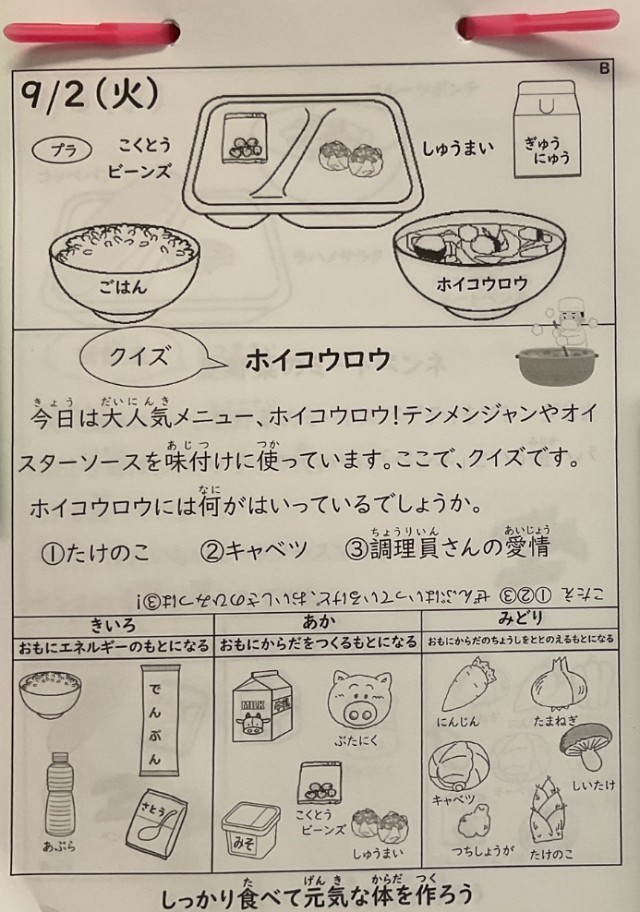 B
9/2(火)
プラ
こくとう
ビーンズ
しゅうまい
ぎゅう
にゅう
ごはん
ホイコウロウ
クイズ
ホイコウロウ
今日は大人気メニュー、ホイコウロウ!テンメンジャンやオイ
スターソースを味付けに使っています。ここで、クイズです。
ホイコウロウには何がはいっているでしょうか。
①たけのこ ②キャベツ ③調理員さんの愛情
こたえ ①②③ ぜんぶはいっているけど、おいしさのひみつは③!
きいろ
おもにエネルギーのもとになる
でんぷん
あぶら
さとう
あか
おもにからだをつくるもとになる
MILK
ぶたにく
こくとう
ビーンズ
みそ
しゅうまい
みどり
おもにからだのちょうしをととのえるもとになる
にんじん
たまねぎ
キャベツ
しいたけ
つちしょうが
たけのこ
しっかり食べて元気な体を作ろう